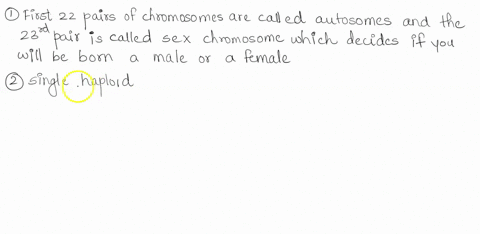 ① First 22 pairs of chromosomes are called autosomes and the
23rd pair is called sex chromosome which decides if you
will be born a male or a female
② single. haploid